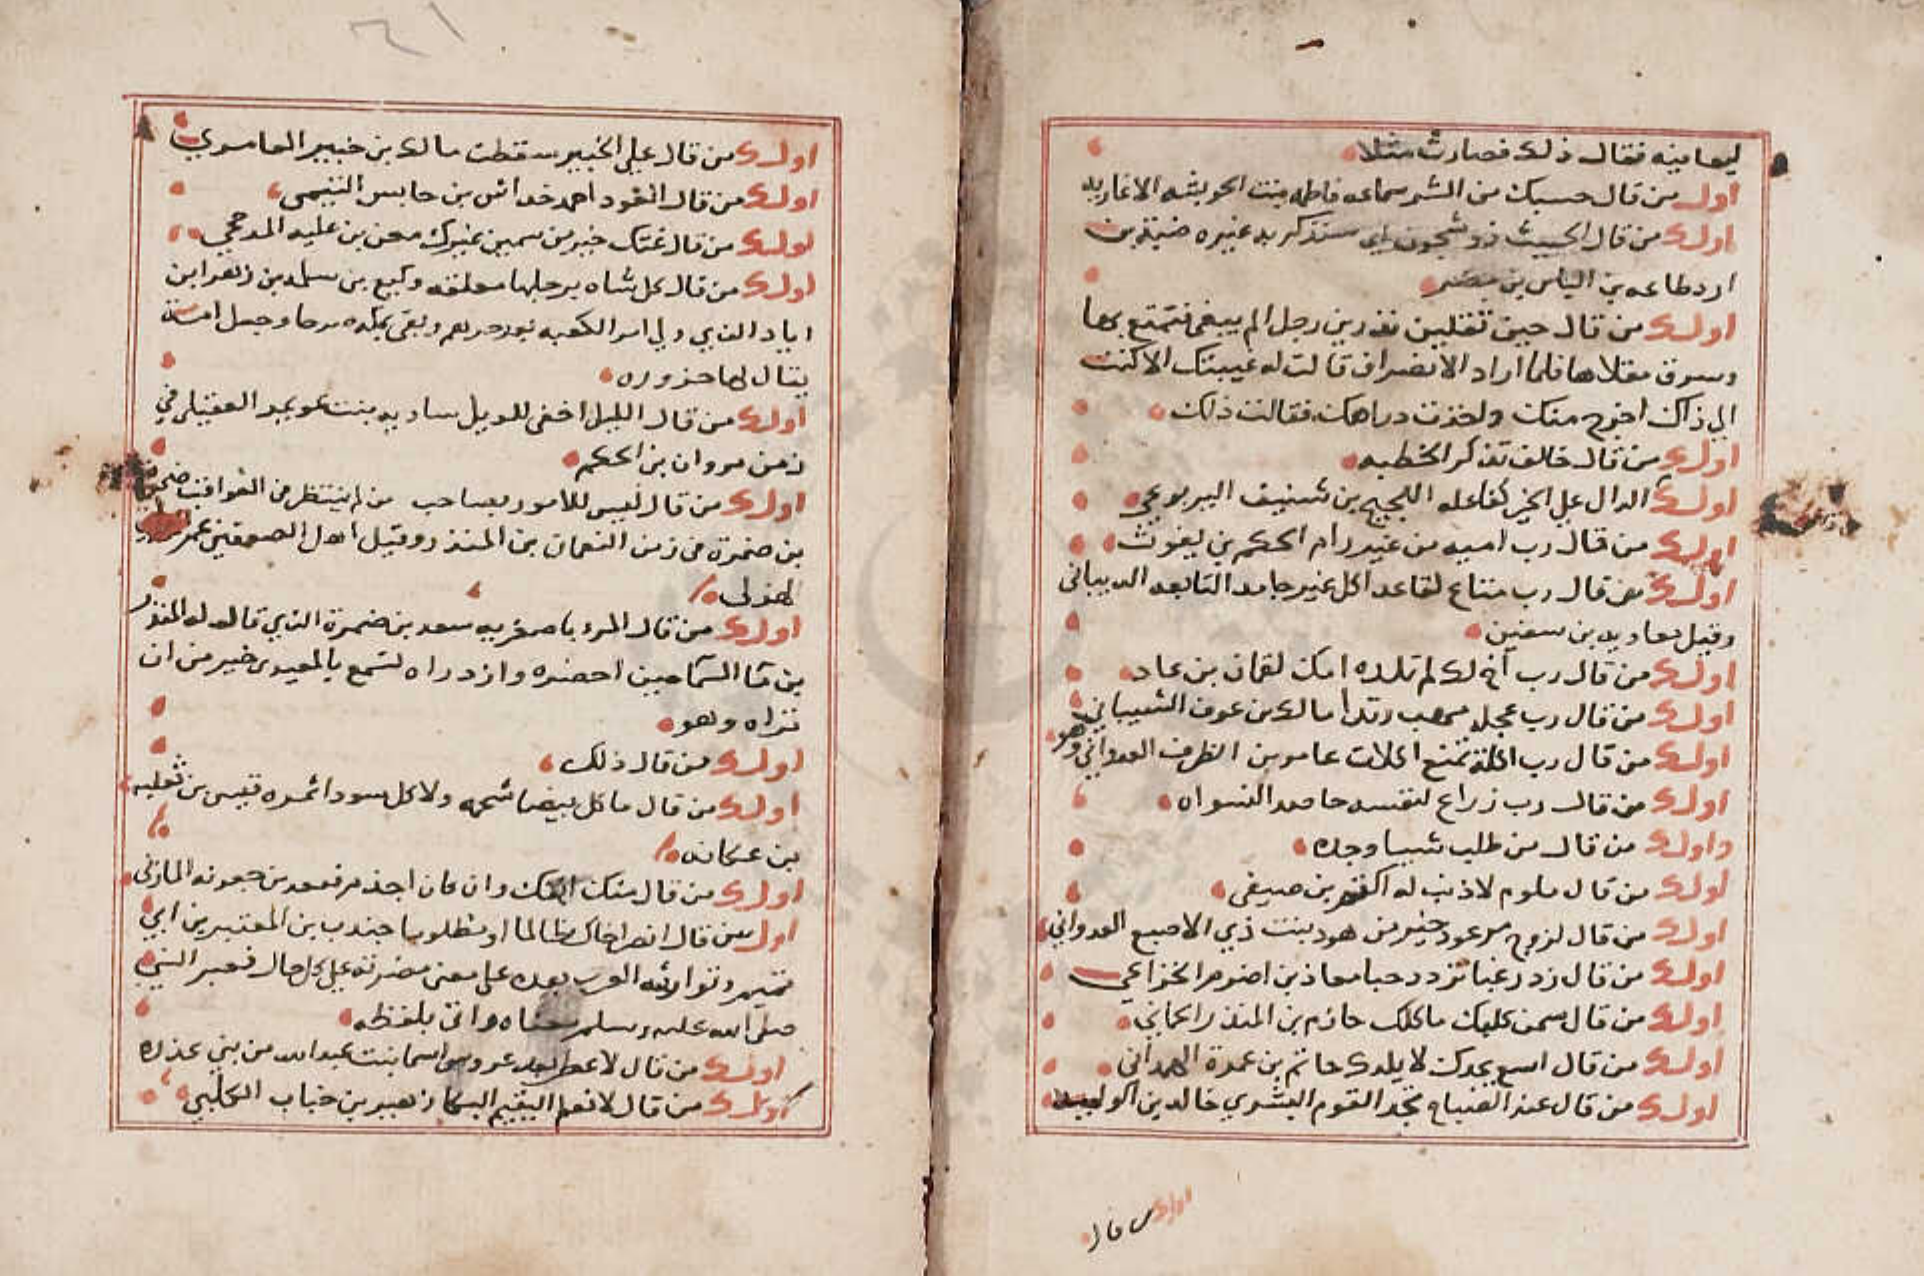 ليعاينه فقال ذلك فصارت مثلا
اول من قال حسبك من الشر سماعه فاطمه بنت الخوشبه الاغاريه
اول من قال الحديث ذو شجون اي ستذكر به غيره ضبة بن
اد طاعه بن الياس بن مضر
اول من قال حين تقلين تدرين رجل الم ببغي فتمتع بها
وسرق مقلاها فلما اراد الانصراف قالت له غبيتك الا كنت
الي ذاك احوج منك واخذت دراهمك فقالت ذلك
اول من قال خالف تذكر الحطيه
اول الدال علي الخير كفاعله اللجيج بن شنيف اليربوعي
اول من قال رب اميه من غير رام الحكم بن يغوث
اول من قال رب ساع لقاعد اكل غير حامد النابغه الدبياني
وقيل معاويه بن سفين
اول من قال رب اخ لك لم تلده امك لقمان بن عاد
اول من قال رب عجله تهب ريثا مالك بن عوف الشيباني
اول من قال رب اكلة تمنع اكلات عامر بن الظرف العدواني وهو
اول من قال رب زراع لنفسه حاصد النسواه
واول من قال من طلب شيبا وجده
اول من قال ملوم لا ذنب له اكثم بن صيفي
اول من قال لزوج من عود خير من هود بنت ذي الاصبع العدواني
اول من قال زد رغبا تزدد حبا معاذ بن اضرم الخزاعي
اول من قال سمن كلبك ماكلك حازم بن المنذر الحماني
اول من قال اسع بجدك لا بكدك حاتم بن عمدة الهمداني
اول من قال عند الصباح تحمد القوم السري خالد بن الوليد
اول من قال
اول من قال علي الخبير سقطت مالك بن خبير العامري
اول من قال العود احمد خداش بن حابس التيمي
اول من قال غثك خير من سمين غيرك معن بن عليه المدحجي
اول من قال كل شاه برجلها معلقه وكيع بن سلمه بن زهر ابن
اياد الذي ولي امر الكعبه بعد جرهم وبقى بمكه صرحا وجعل امة
يقال لها حزوره
اول من قال الليل اخفى للويل ساريه بنت عويمر العقيلي في
زمن مروان بن الحكم
اول من قال ليس للامور بصاحب من لم ينتظر في العواقب ضمرة
بن ضمرة في زمن النعمان بن المنذر وقيل اهل الصعوقين عمر
الهذلي
اول من قال المرء باصغريه سعد بن ضمرة الذي قال له المنذر
بن ما السماحين احضره وازدراه لتسمع بالمعيدي خير من ان
تراه وهو
اول من قال ذلك
اول من قال ما كل بيضا شحمه ولا كل سودا تمره قيس بن ثعلبه
بن عكابه
اول من قال منك انفك وان كان اجذم قعد بن جعونه المازني
اول من قال انصر اخاك ظالما او مظلوما جندب بن العنبر بن ابي
تميم وتوارثته العرب بعده علي معنى مضرته علي كل حال فعبر النبي
صلي الله عليه وسلم معناه واتى بلفظه
اول من قال لا عطر بعد عروس اسما بنت عبد الله من بني عذره
اول من قال لا تعلم اليتيم البكا زهير بن خباب الكلبي